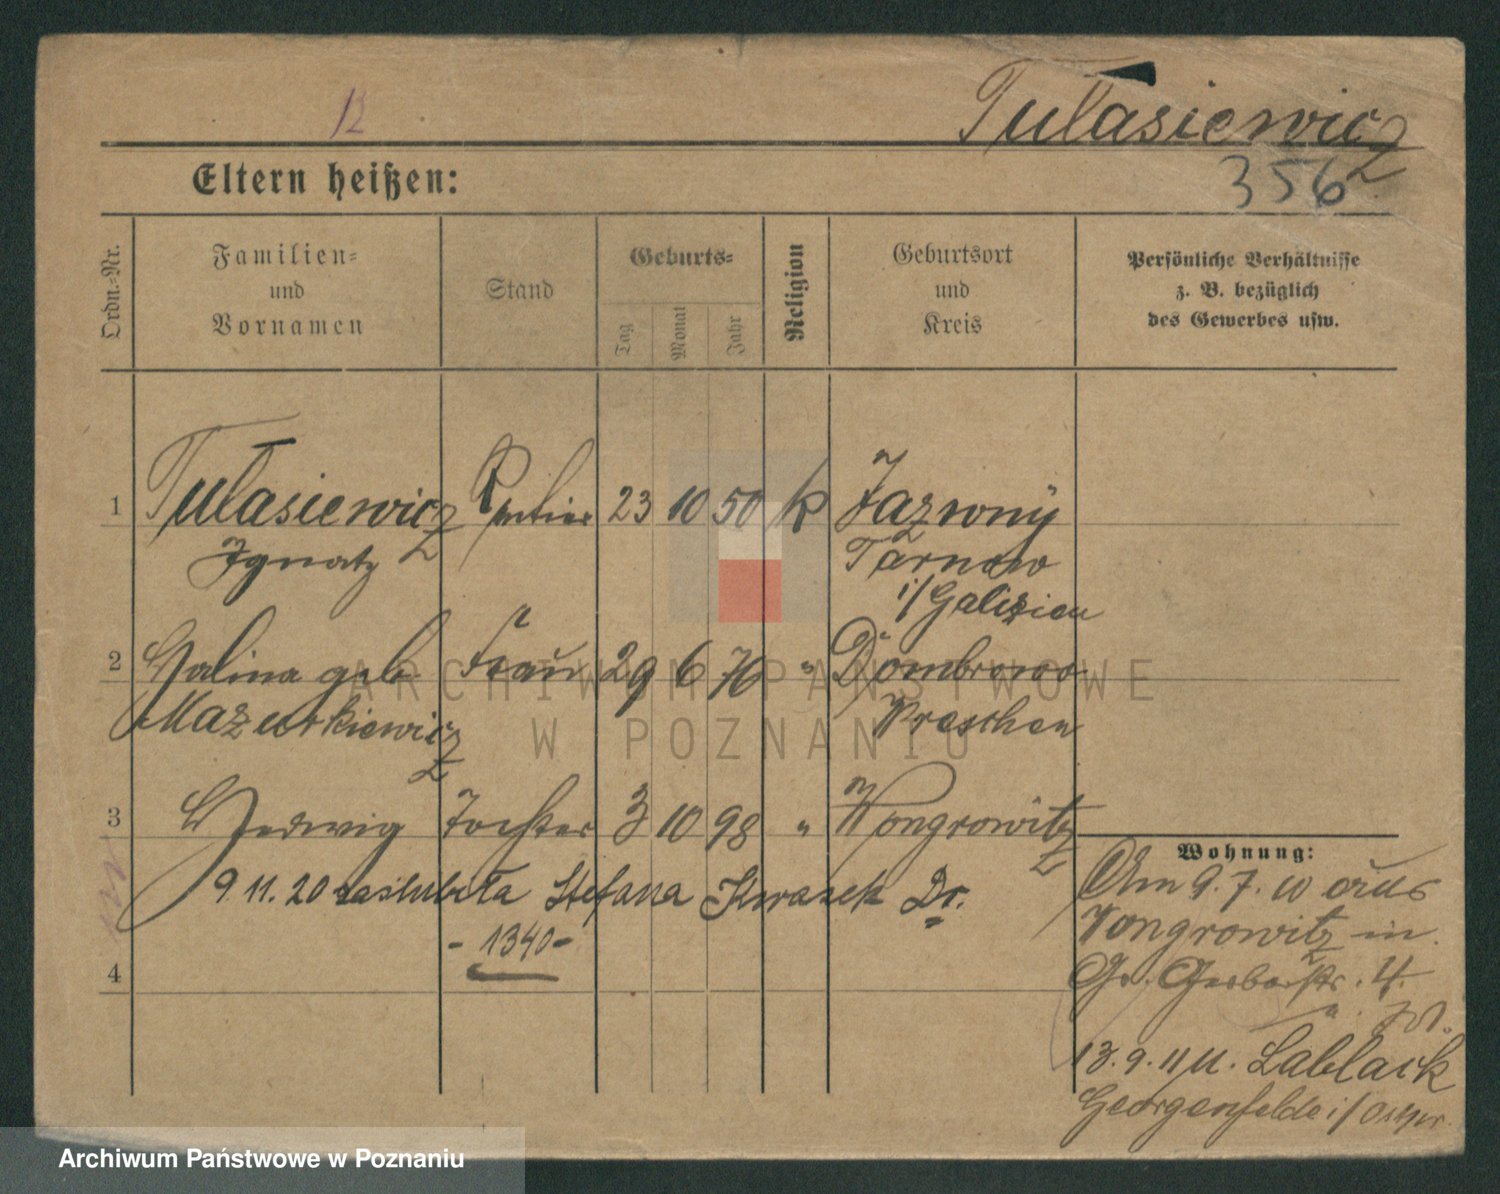 12
Tułasiewicz
356
Eltern heißen:
Ordn.-Nr.
Familien-
und
Vornamen
Stand
Geburts-
Tag
Monat
Jahr
Religion
Geburtsort
und
Kreis
Persönliche Verhältnisse
z. B. bezüglich
des Gewerbes usw.
1 Tułasiewicz Rentier 23 10 50 k Jazwny
Ignatz Tarnow
i/Galizien
2 Halina geb. Frau 29 6 76 " Dombrowo
Mazurkiewicz Wreschen
3 Hedwig Tochter 3 10 98 " Wongrowitz
9.11.20 zaślubiła Stefana Kwasek Dr.
- 1340 -
4
Wohnung:
Am 9.7.10 aus
Wongrowitz in
Gr. Gerberstr. 4.
13.9.11 n. Lablack
Georgenfelde i/Ostpr.
ARCHIWUM PAŃSTWOWE
W POZNANIU
Archiwum Państwowe w Poznaniu